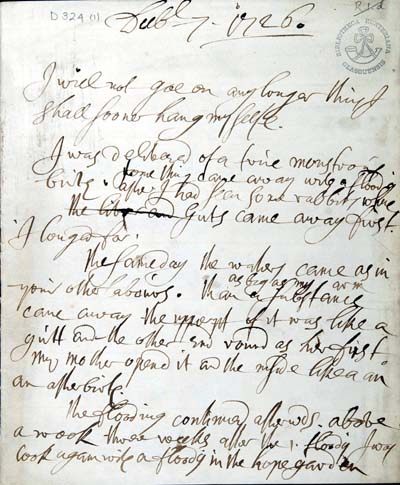 D 324 (1)
Decbr 7. 1726.
BIBLIOTHECA HUNTERIANA GLASGUENSIS
I will not goe on any longer thus I
shall sooner hang myselfe
I was delivered of a true monstros
birth. some thing came away with a flooding
after I had seen some rabbits where
the guts came away first
I longed for.
the same day the waters came as in
your other labours. than a substance
as big as my arm
came away the of it was like a
gutt and the other end round as her first
my mother opend it and the inside like a an
an afterbirth.
the flooding continued afterwds. above
a week three weeks after the 1. floody I was
took again with a floody in the hope garden